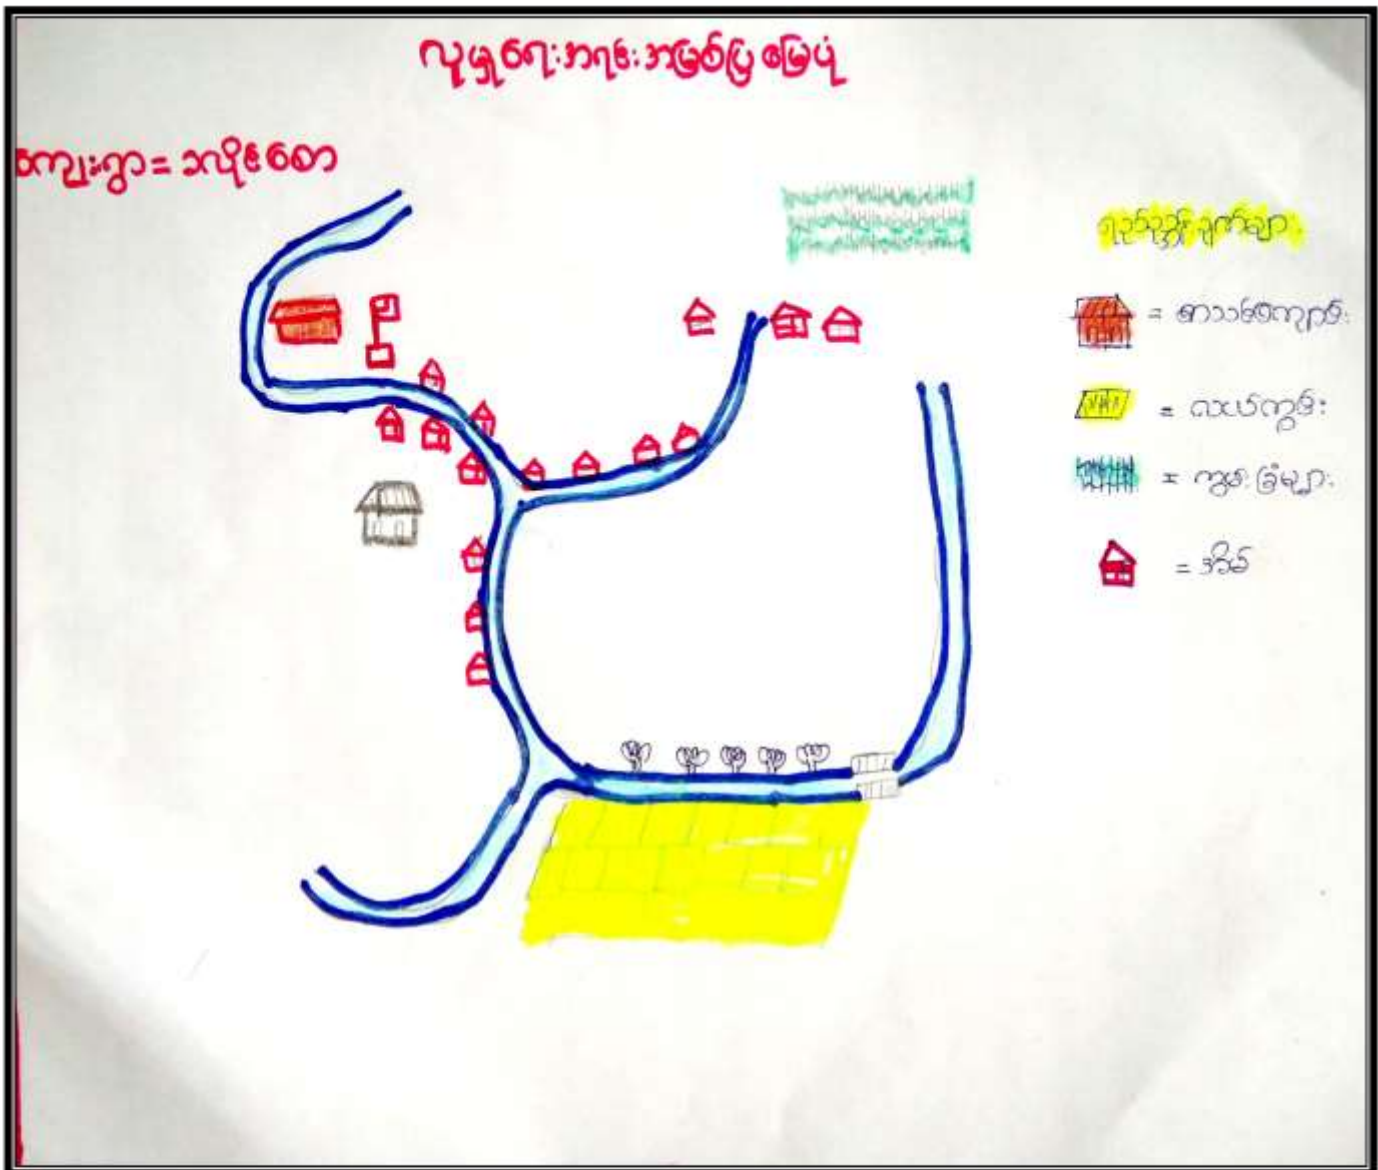 လူမှုရေးအရင်းအမြစ်ပြမြေပုံ
ကျေးရွာ = ခလိုင်စော
ရည်ညွှန်းချက်များ
= စာသင်ကျောင်း
= လယ်ကွင်း
= ကွမ်းခြံများ
= အိမ်